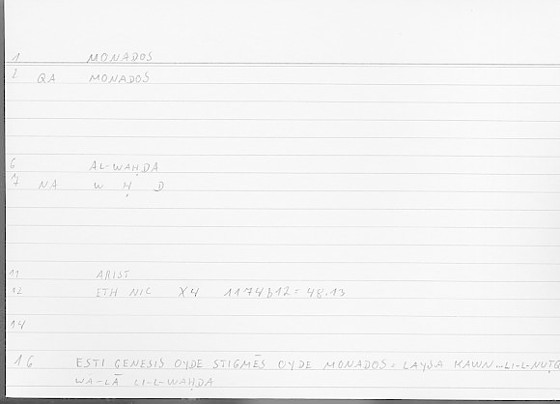 1 MONADOS
2 QA MONADOS
6 AL-WAḤDA
7 NA W Ḥ D
11 ARIST
12 ETH NIC X4 1174b12 = 48.13
14
16 ESTI GENESIS OYDE STIGMĒS OYDE MONADOS = LAYSA KAWN...LI-L-NUQṬ
WA-LĀ LI-L-WAḤDA